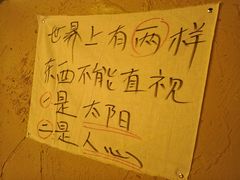 世界上有两样
东西不能直视
一是太阳
二是人心